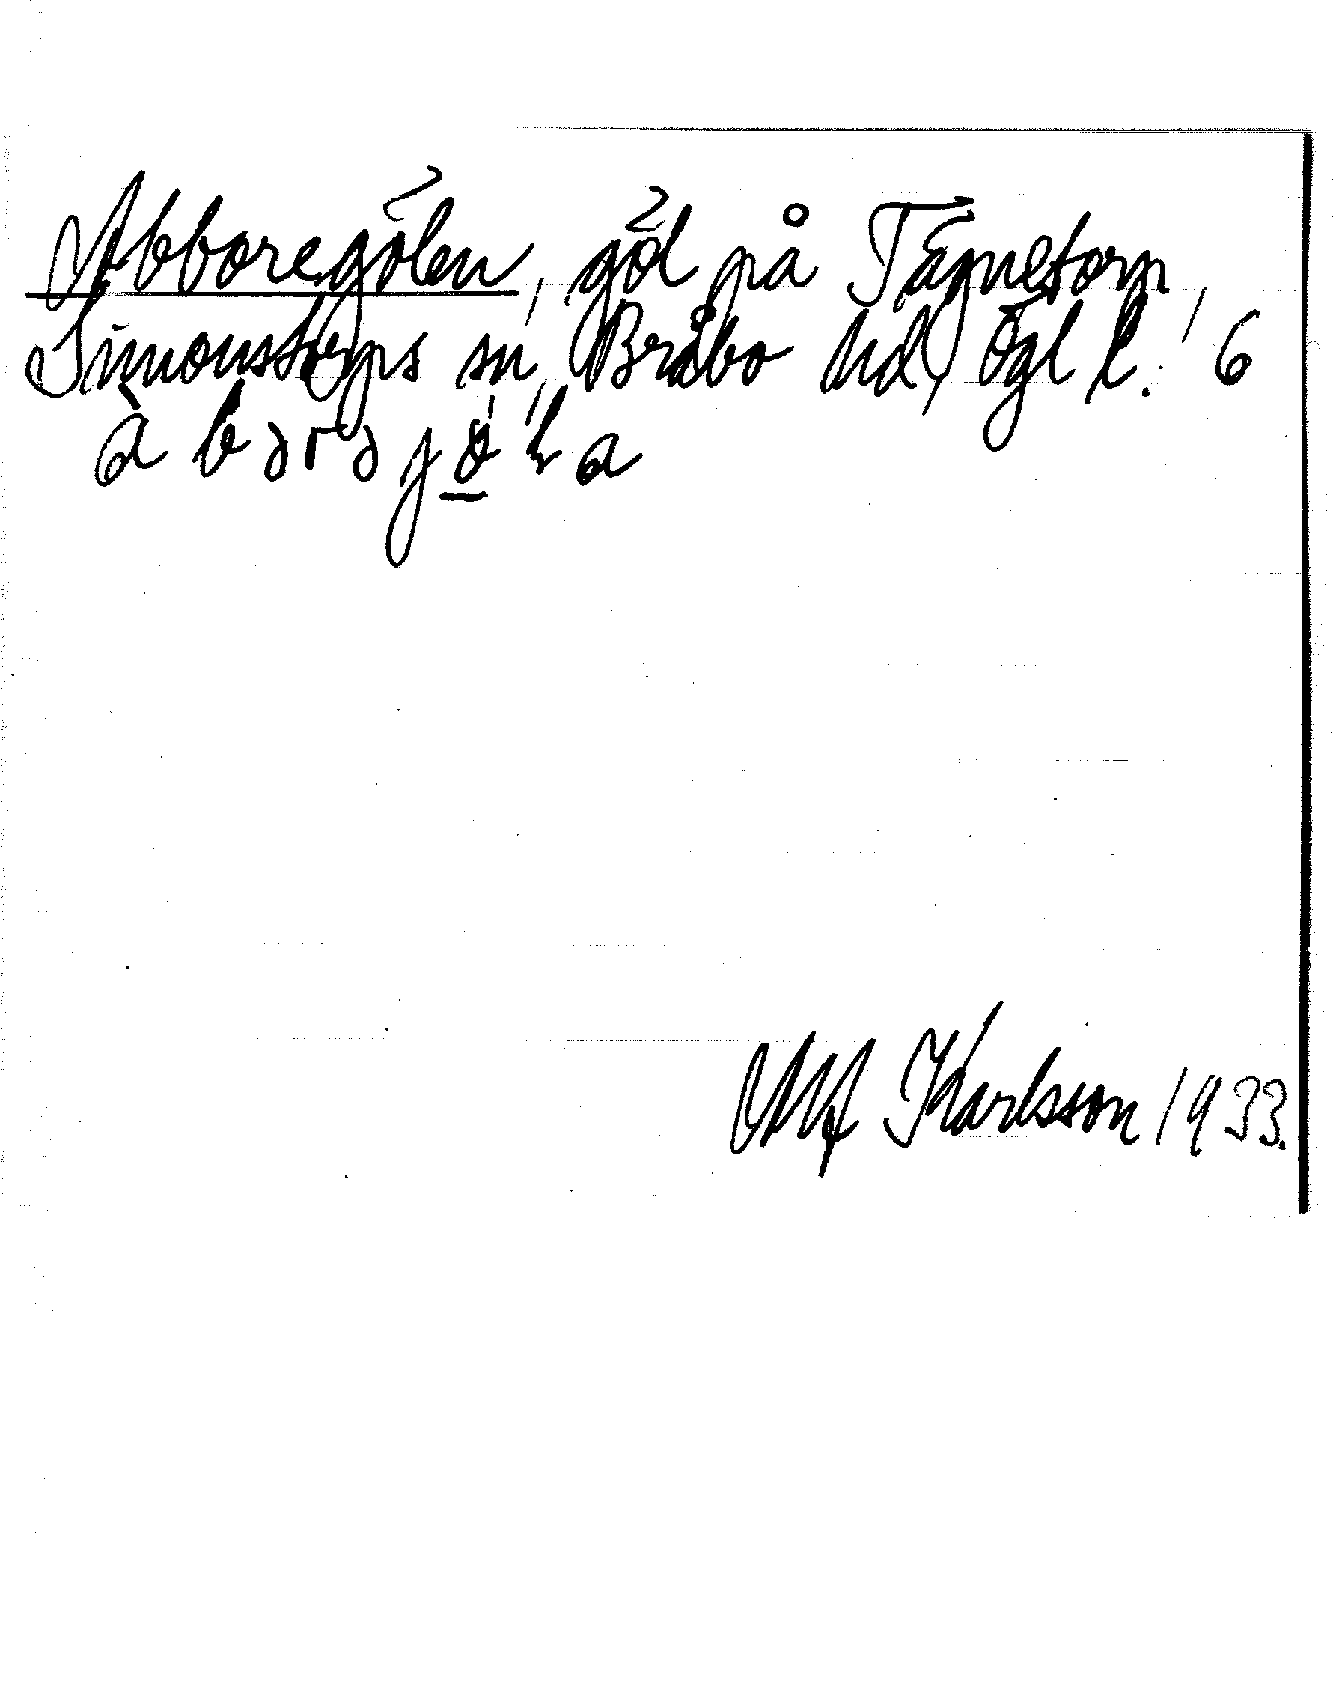 Abboregölen, göl på Tägnetorp,
Simonstorps sn, Bråbo hd, Ögl l. 6
àbərəgö̱la
Alf Karlsson 1933.